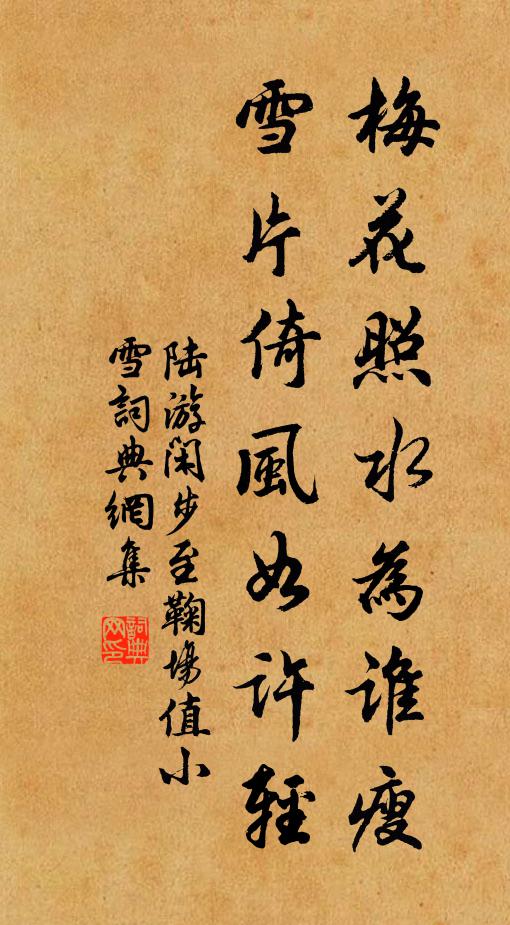 梅花照水為誰瘦
雪片倚風如許輕
陆游闲步至鞠場值小
雪詞典網集
詞典网印